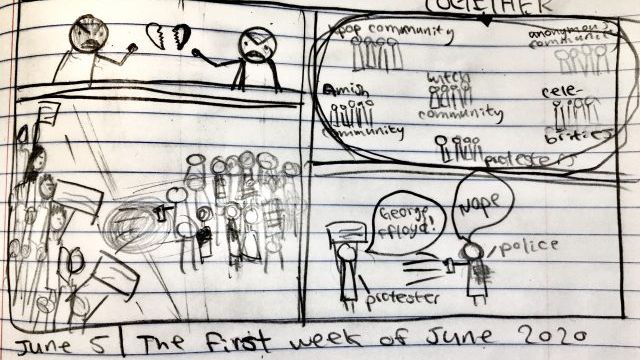 TOGETHER
kpop community
anonymous
community
Amish
community
witch
community
cele-
brities
protesters
George
Ffloyd!
Nope
police
protester
June 5 | The first week of June 2020